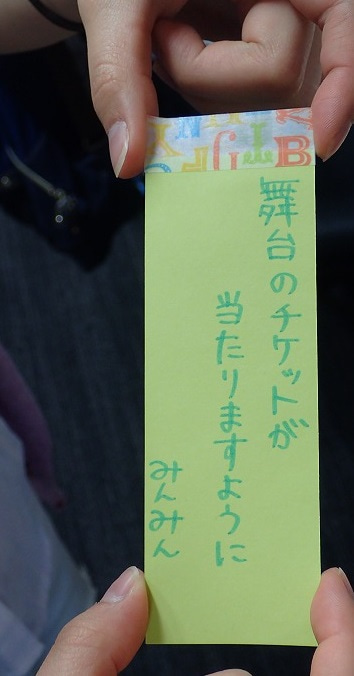 舞台のチケットが
当たりますように
みんみん
B